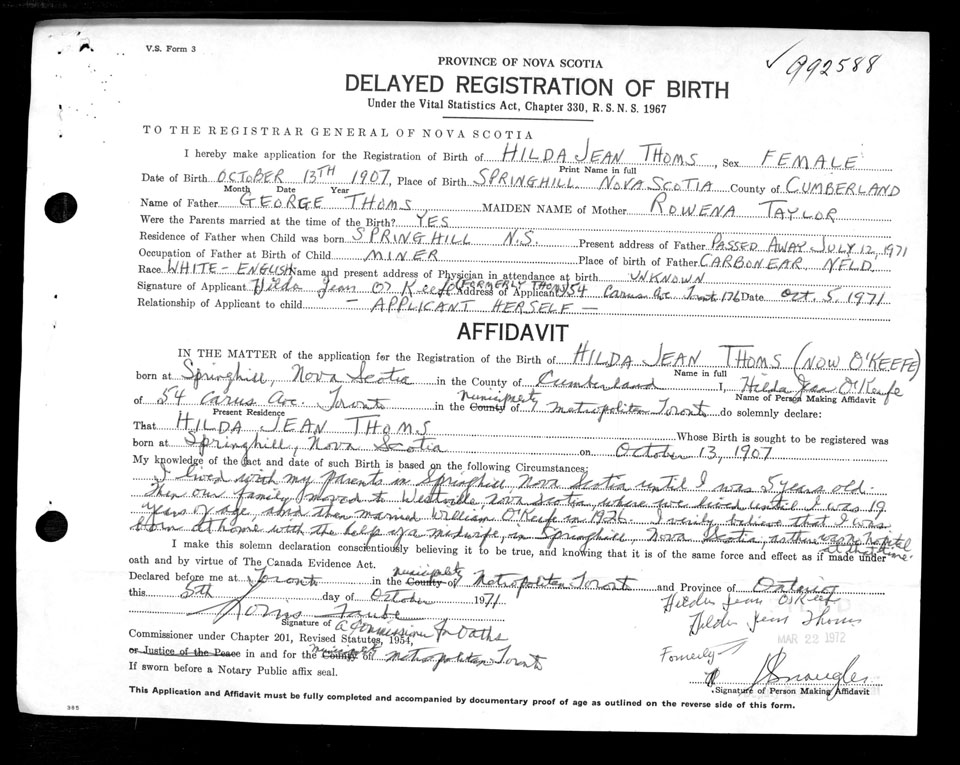 V.S. Form 3
✓ 992588
PROVINCE OF NOVA SCOTIA
DELAYED REGISTRATION OF BIRTH
Under the Vital Statistics Act, Chapter 330, R.S.N.S. 1967
TO THE REGISTRAR GENERAL OF NOVA SCOTIA
I hereby make application for the Registration of Birth of HILDA JEAN THOMS, Sex FEMALE
Print Name in full
Date of Birth OCTOBER 13TH 1907, Place of Birth SPRINGHILL NOVA SCOTIA County of CUMBERLAND
Month Date Year
Name of Father GEORGE THOMS MAIDEN NAME of Mother ROWENA TAYLOR
Were the Parents married at the time of the Birth? YES
Residence of Father when Child was born SPRINGHILL N.S. Present address of Father PASSED AWAY JULY 12, 1971
Occupation of Father at Birth of Child MINER Place of birth of Father CARBONEAR, NFLD.
Race WHITE - ENGLISH Name and present address of Physician in attendance at birth UNKNOWN
Signature of Applicant Hilda Jean O'Keefe (FORMERLY THOMS) Address of Applicant 54 Carus Ave Toront 176 Date Oct. 5, 1971
Relationship of Applicant to child - APPLICANT HERSELF -
AFFIDAVIT
IN THE MATTER of the application for the Registration of the Birth of HILDA JEAN THOMS (NOW O'KEEFE)
Name in full
born at Springhill, Nova Scotia in the County of Cumberland I, Hilda Jean O'Keefe
Name of Person Making Affidavit
of 54 Carus Ave. Toronto in the County Municipality of Metropolitan Toronto do solemnly declare:
Present Residence
That HILDA JEAN THOMS Whose Birth is sought to be registered was
born at Springhill, Nova Scotia on October 13, 1907
My knowledge of the fact and date of such Birth is based on the following Circumstances:
I lived with my parents in Springhill Nova Scotia until I was 5 years old.
Then our family moved to Westville, Nova Scotia, where we lived until I was 19
years of age and then married William O'Keefe in 1926. I verily believe that I was
born at home with the help of a midwife, in Springhill, Nova Scotia, as there was no hospital
at that time.
I make this solemn declaration conscientiously believing it to be true, and knowing that it is of the same force and effect as if made under
oath and by virtue of The Canada Evidence Act.
Declared before me at Toronto in the County Municipality of Metropolitan Toronto and Province of Ontario
this 5th day of October 1971
Hilda Jean O'Keefe
Hilda Jean Thoms
Signature of
A Commissioner for Oaths
MAR 22 1972
Commissioner under Chapter 201, Revised Statutes, 1954,
or Justice of the Peace in and for the County Municipality of Metropolitan Toronto
Formerly
If sworn before a Notary Public affix seal.
Signature of Person Making Affidavit
This Application and Affidavit must be fully completed and accompanied by documentary proof of age as outlined on the reverse side of this form.
385